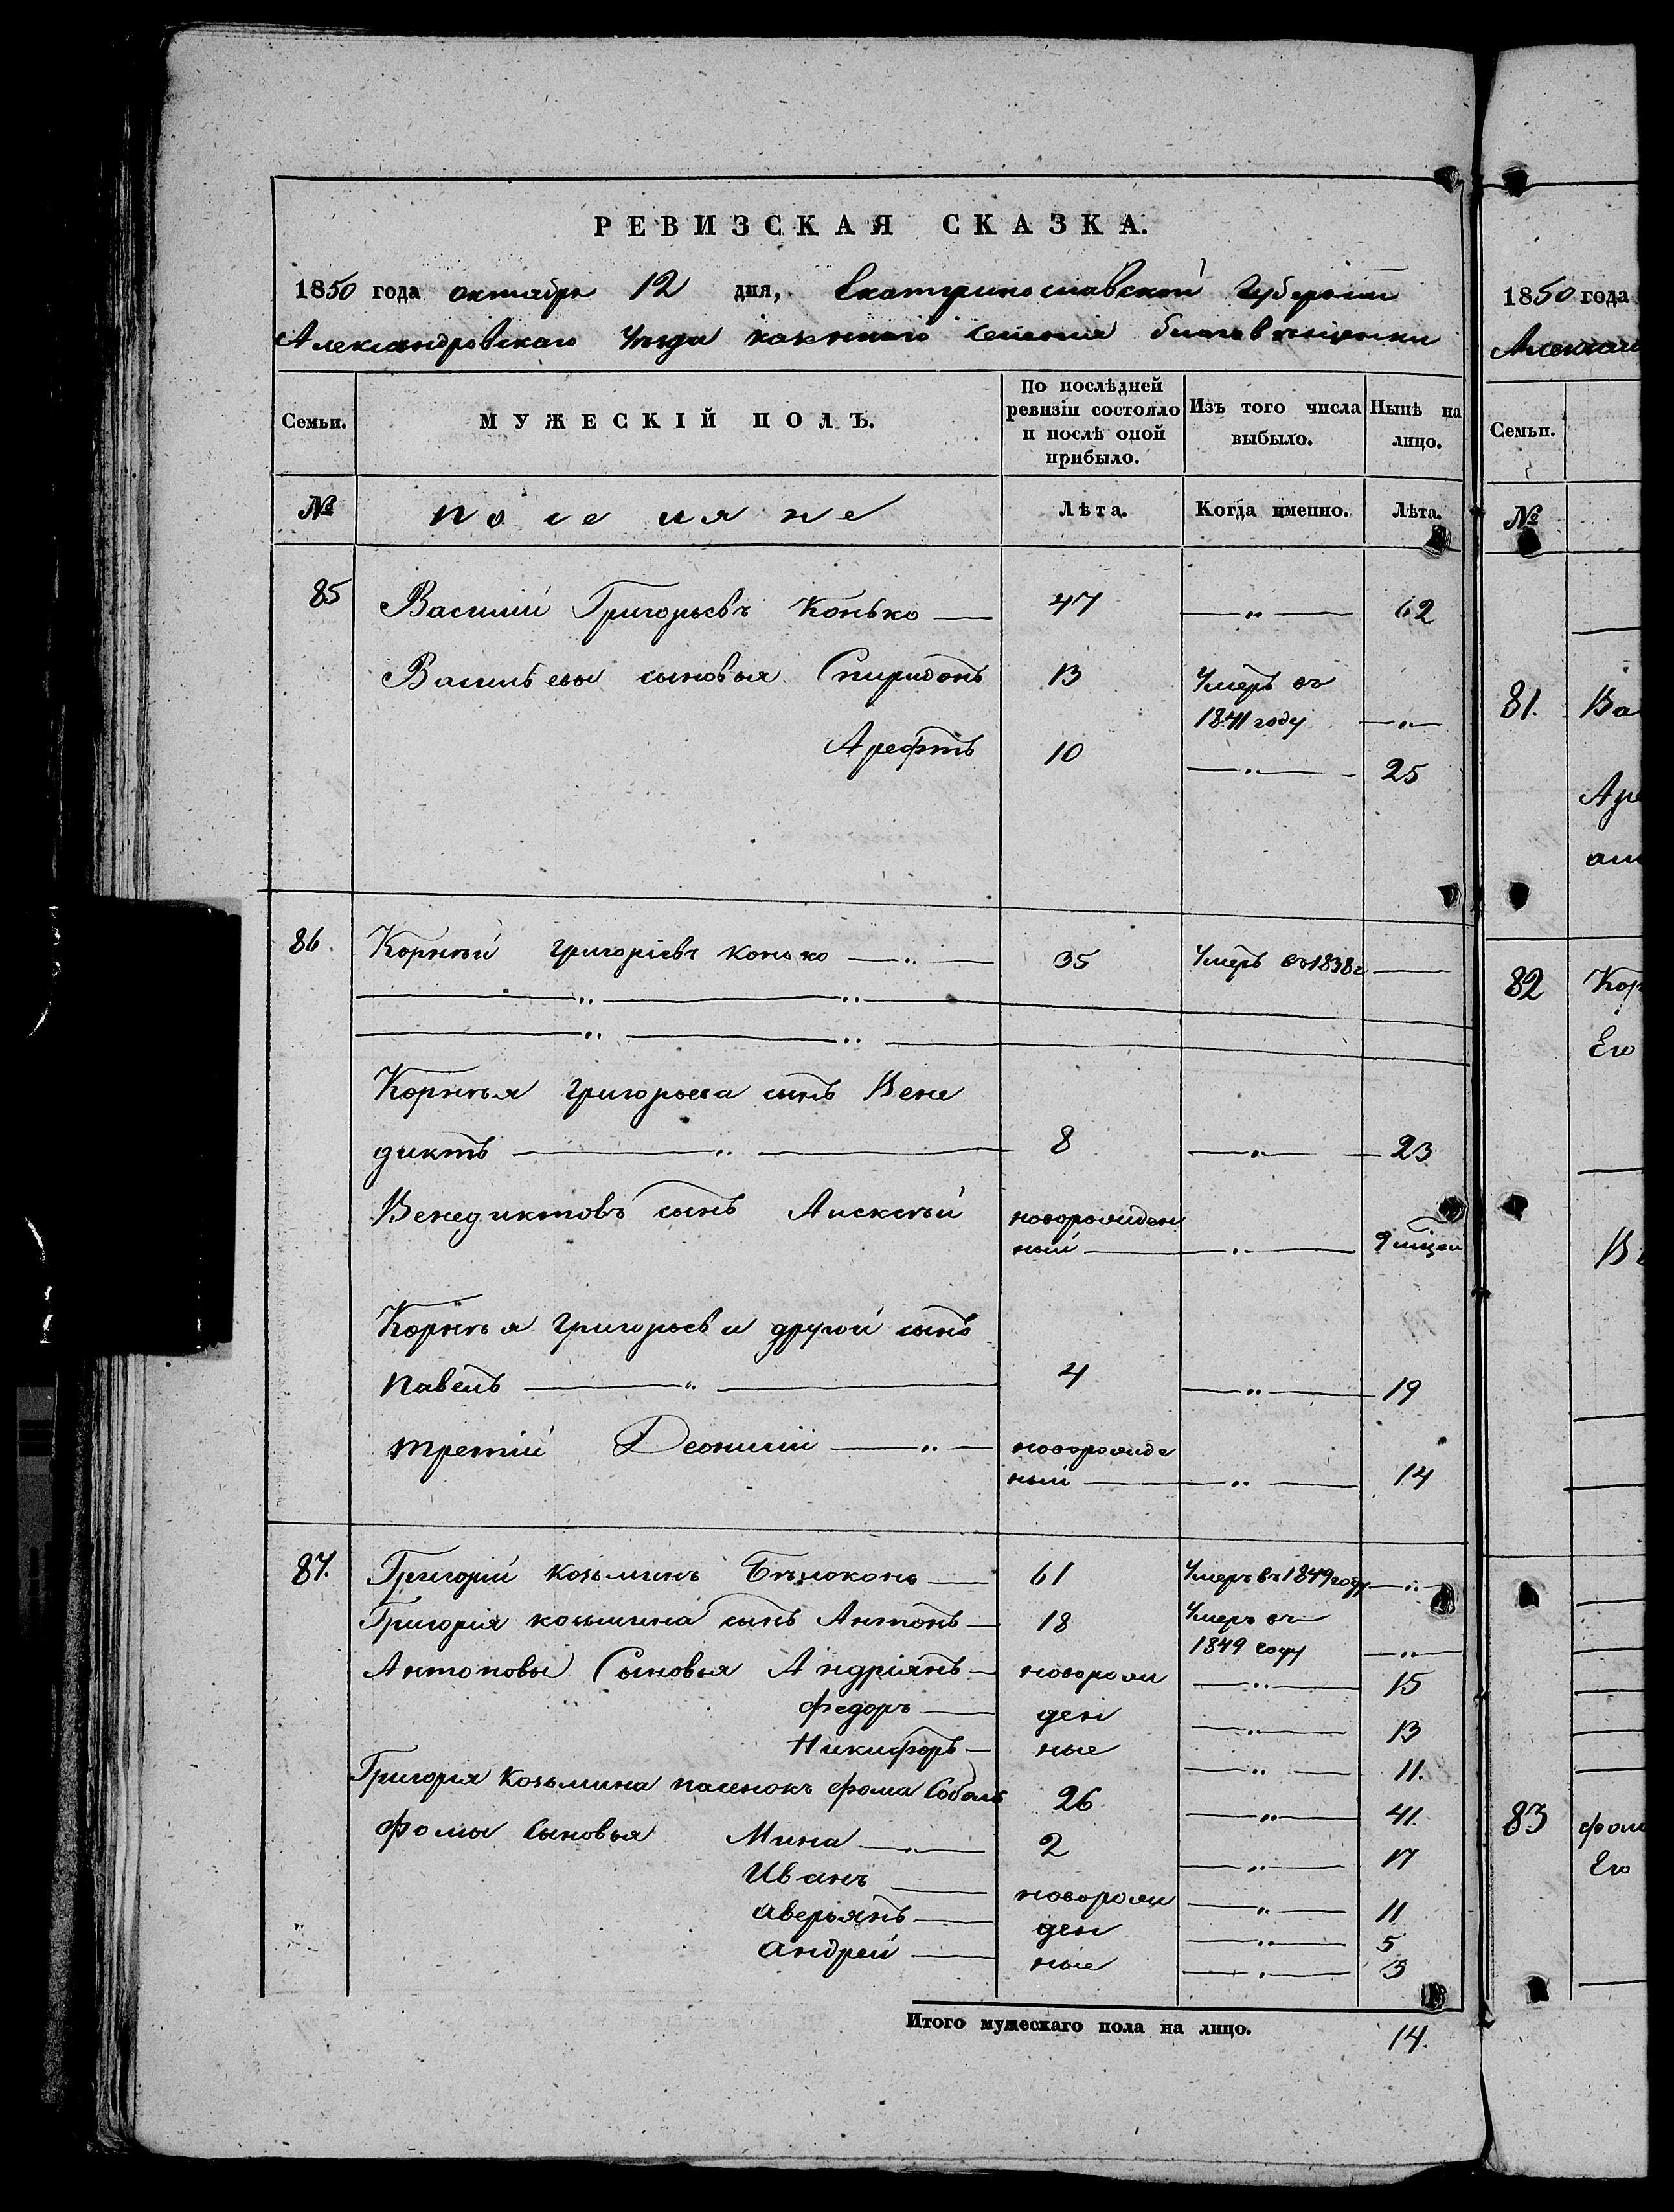 РЕВИЗСКАЯ СКАЗКА.
1850 года октября 12 дня, Екатеринославской Губернии
Александровскаго Уѣзда казеннаго селенія благовѣщенки
Семьи.
МУЖЕСКІЙ ПОЛЪ.
По послѣдней ревизіи состояло и послѣ оной прибыло.
Изъ того числа выбыло.
Нынѣ на лицо.
№ поселяне Лѣта. Когда именно. Лѣта.
85 Василій Григорьевъ Конько — 47 — „ — 62
Васильевы сыновья Спиридонъ 13 Умеръ въ
1841 году — „ —
Арефтъ 10 — „ — 25
86. Корнѣй григоріевъ конько — „ — 35 Умеръ въ 1838 г —
— „ — „ —
— „ — „ —
Корнѣя григорьева сынъ Вене
диктъ — „ — 8 — „ — 23
Венедиктовъ сынъ Алексѣй новорожден
ный — „ — 9 мѣцей
Корнѣя григорьева другой сынъ
павелъ — „ — 4 — „ — 19
третій Деонисій — „ — новорожде
ный — „ — 14
87. Григорій козьминъ Бѣлоконь — 61 Умеръ въ 1849 году — „ —
Григорія козьмина сынъ Антонъ — 18 Умеръ въ
1849 году — „ —
Антоновы Сыновья Андріянъ — новорож — „ — 15
федоръ — ден — „ — 13
Никифоръ — ные — „ — 11.
Григорія Козьмина пасенокъ фома Соболь 26 — „ — 41.
фомы сыновья Мина — „ — 2 — „ — 17
Иванъ — новорож — „ — 11
аверьянъ — ден — „ — 5
андрей — ные — „ — 3
Итого мужескаго пола на лицо. 14.
1850 года
Семьи.
№
81. Ва
Аре
82 Кор
Его
83 фом
Его